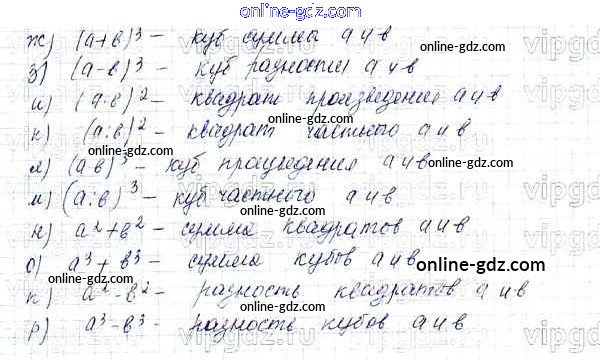 online-gdz.com
ж) (а+в)³ – куб суммы а и в
online-gdz.com
з) (а-в)³ – куб разности а и в
online-gdz.com
и) (а·в)² – квадрат произведения а и в
к) (а:в)² – квадрат частного а и в
online-gdz.com
л) (а·в)³ – куб произведения а и в
online-gdz.com
м) (а:в)³ – куб частного а и в
online-gdz.com
н) а²+в² – сумма квадратов а и в
о) а³+в³ – сумма кубов а и в
online-gdz.com
п) а²-в² – разность квадратов а и в
р) а³-в³ – разность кубов а и в
online-gdz.com